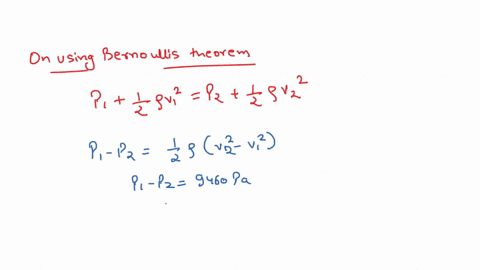 On using Bernoullis theorem
P₁ + 1/2 ρv₁² = P₂ + 1/2 ρv₂²
P₁ - P₂ = 1/2 ρ (v₂² - v₁²)
P₁ - P₂ = 9460 Pa